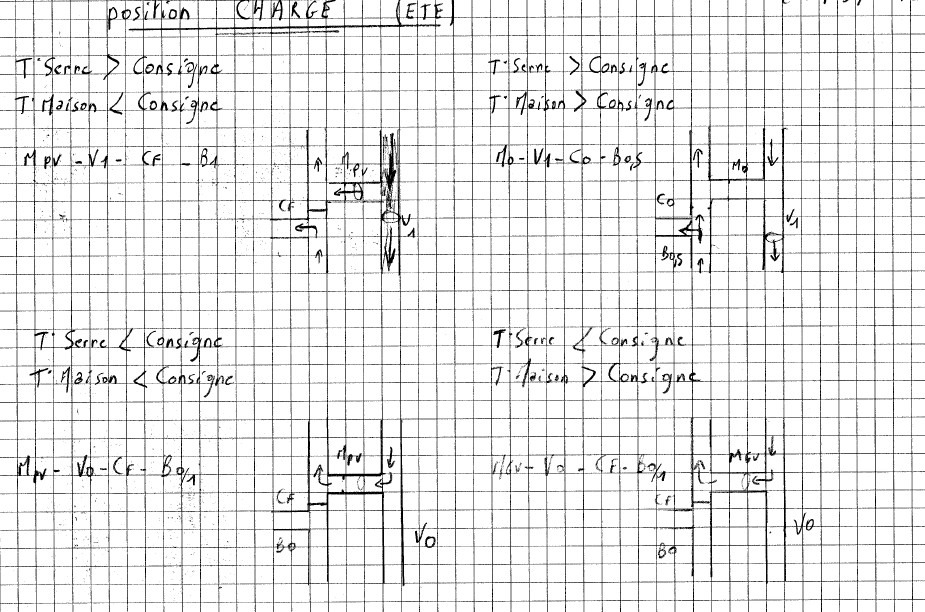 position CHARGE (ETE)
T° Serre > Consigne
T° Maison < Consigne
Mpv - V1 - CF - B1
Mpv
CF
V1
T° Serre > Consigne
T° Maison > Consigne
M0 - V1 - C0 - B0,5
M0
C0
V1
B0,5
T° Serre < Consigne
T° Maison < Consigne
Mpv - V0 - CF - B0/1
Mpv
CF
B0
V0
T° Serre < Consigne
T° Maison > Consigne
MGv - V0 - CF - B0/1
MGv
CF
B0
V0